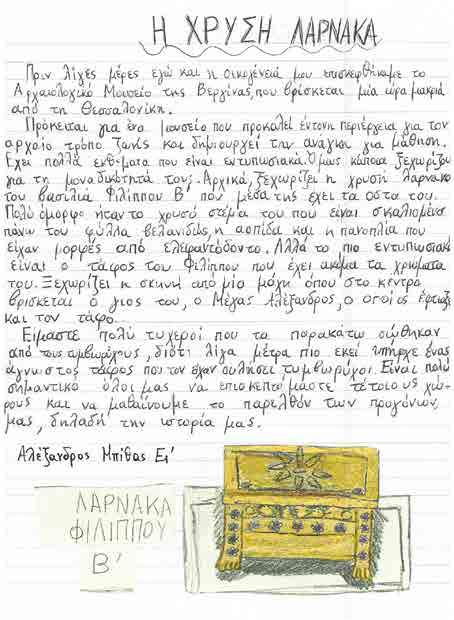 Η ΧΡΥΣΗ ΛΑΡΝΑΚΑ
Πριν λίγες μέρες εγώ και η οικογένειά μου επισκεφθήκαμε το
Αρχαιολογικό Μουσείο της Βεργίνας, που βρίσκεται μία ώρα μακριά
από τη Θεσσαλονίκη.
Πρόκειται για ένα μουσείο που προκαλεί έντονη περιέργεια για τον
αρχαίο τρόπο ζωής και δημιουργεί την ανάγκη για μάθηση.
Έχει πολλά εκθέματα που είναι εντυπωσιακά. Όμως κάποια ξεχωρίζουν
για τη μοναδικότητά τους. Αρχικά, ξεχωρίζει η χρυσή λάρνακα
του βασιλιά Φιλίππου Β' που μέσα της έχει τα οστά του.
Πολύ όμορφο ήταν το χρυσό στέμα του που είναι σκαλισμένα
πάνω του φύλλα βελανιδιάς, η ασπίδα και η πανοπλία που
είχαν μορφές από ελεφαντόδοντο. Αλλά το πιο εντυπωσιακό
είναι ο τάφος του Φιλίππου που έχει ακόμα τα χρώματα
του. Ξεχωρίζει η σκηνή από μία μάχη όπου στο κέντρο
βρίσκεται ο γιος του, ο Μέγας Αλέξανδρος, ο οποίος έφτιαξε
και τον τάφο.
Είμαστε πολύ τυχεροί που τα παρακάτω σώθηκαν
από τους τυμβωρύχους, διότι λίγα μέτρα πιο εκεί υπήρχε ένας
άγνωστος τάφος που τον είχαν συλήσει τυμβωρύχοι. Είναι πολύ
σημαντικό όλοι μας να επισκεπτώμαστε τέτοιους χώ-
ρους και να μαθαίνουμε το παρελθόν των προγόνων
μας, δηλαδή την ιστορία μας.
Αλέξανδρος Μπίθας Ε1'
ΛΑΡΝΑΚΑ
ΦΙΛΙΠΠΟΥ
Β'